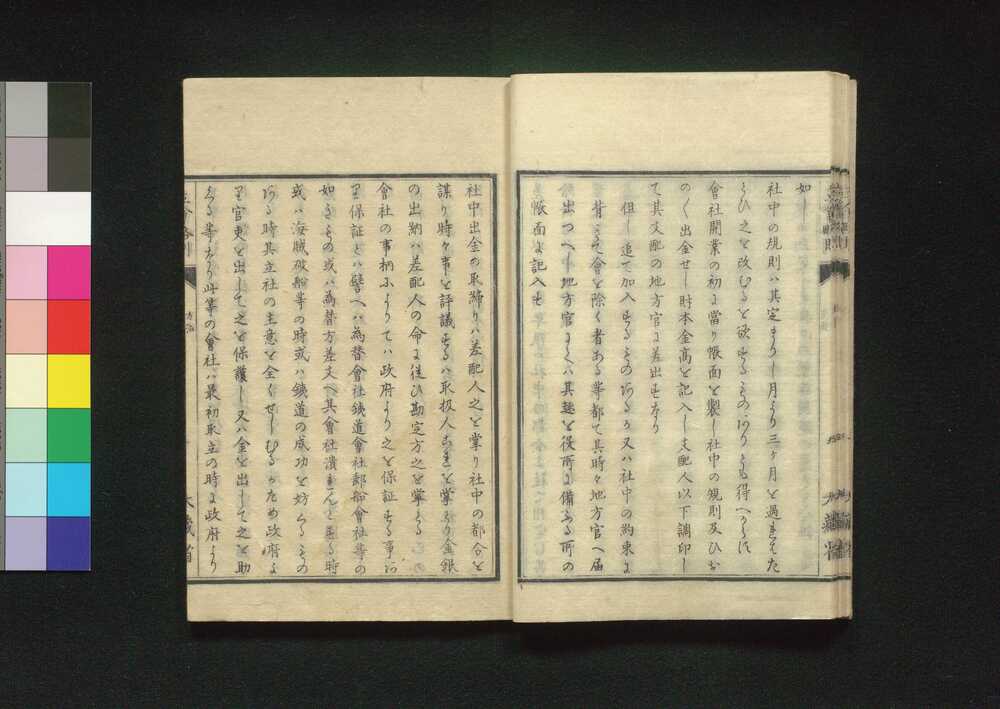 如し
社中の規則ハ其定まりし月より三ヶ月を過きされた
らひ之を改むるを欲するものありとも得へからす
會社開業の初に當り帳面を製し社中の規則及ひお
のく出金せし財本金高を記入し支配人以下調印し
て其支配の地方官に差出すなり
但し追て加入するものあるか又ハ社中の約束に
背きて會を除く者ある等都て其時々地方官へ届
け出つへし地方官よくハ其趣を役所に備ふる所の
帳面に記入す
社中出金の取締りハ差配人之を掌り社中の都合を
謀り時々事を評議するハ取扱人これを掌り金銀
の出納ハ差配人の命に従ひ勘定方之を掌る
會社の事柄によりてハ政府より之を保証する事あ
り保証とハ譬へハ為替會社鐵道會社郵船會社等の
如きもの或ハ為替方差支へ其會社潰れんとする時
或ハ海賊破船等の時或ハ鐵道の成功を妨くるもの
ある時其立社の主意を全くせしむるかため政府よ
り官吏を出して之を保護し又ハ金を出して之を助
くる等なり此等の會社ハ最初取立の時に政府より
大藏省